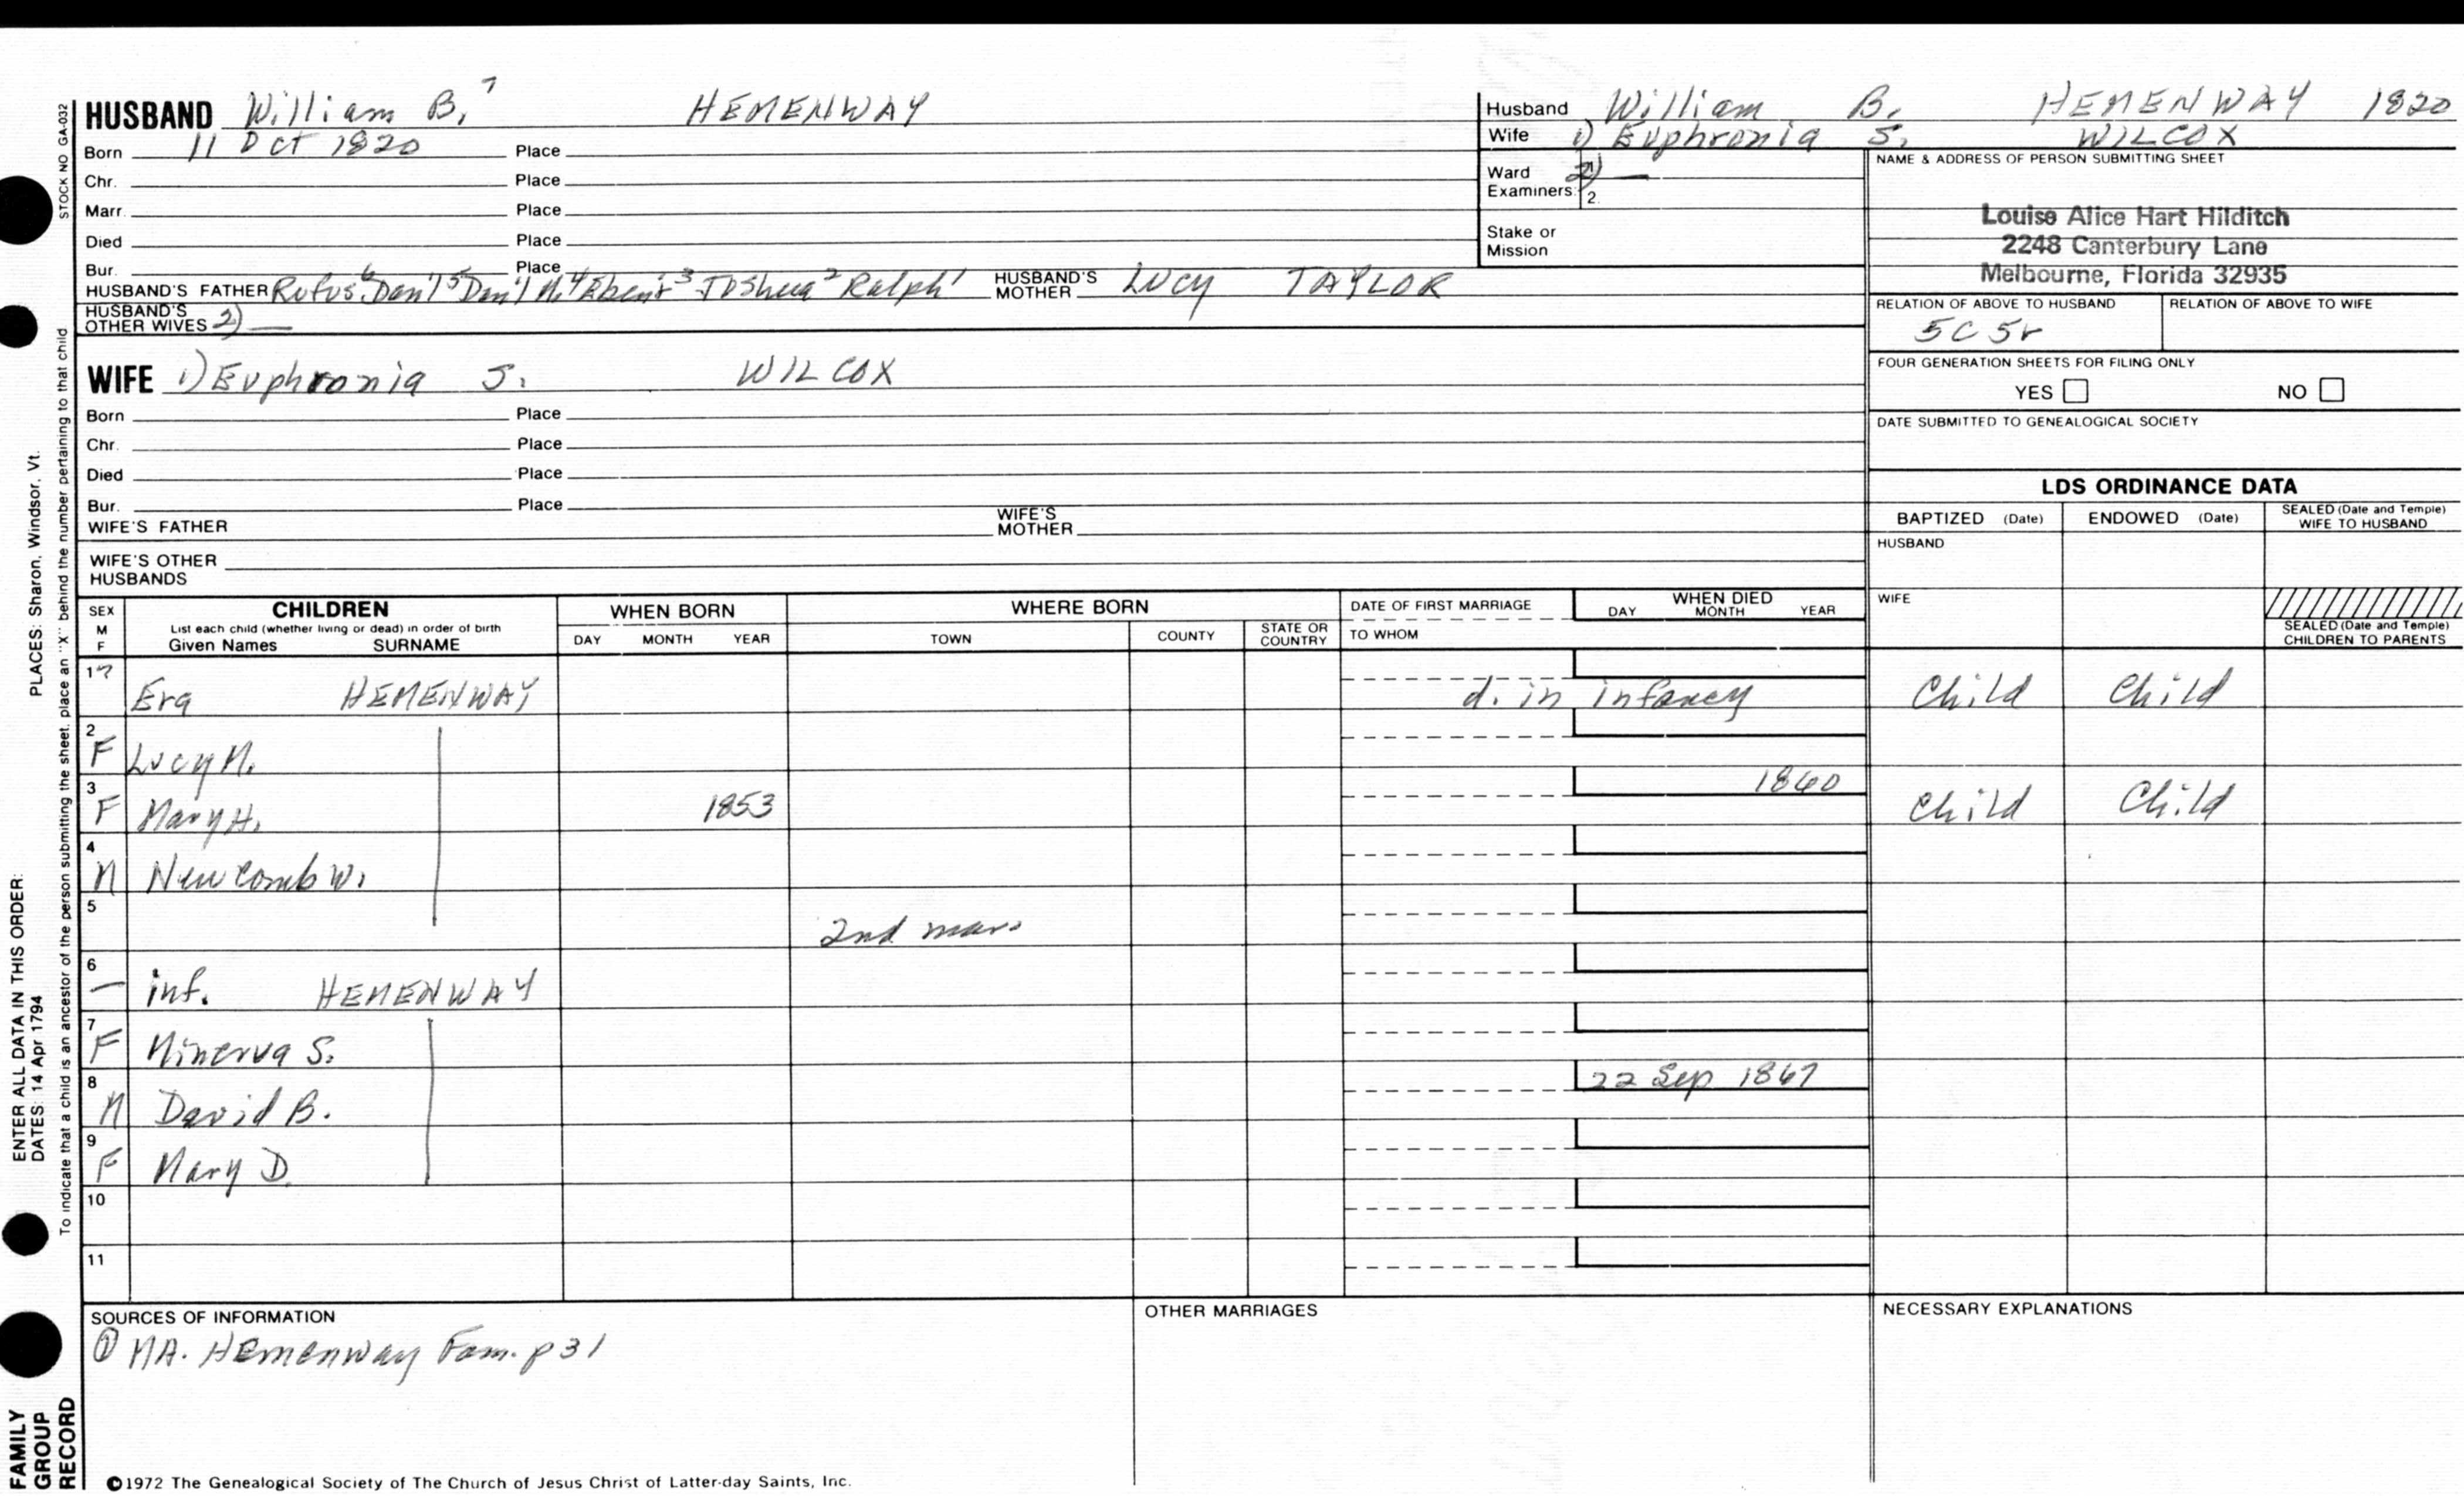 HUSBAND William B.⁷ HEMENWAY
Born 11 Oct 1820 Place
Chr. Place
Marr. Place
Died Place
Bur. Place
HUSBAND'S FATHER Rufus⁶ Dan'l⁵ Dan'l M.⁴ Eben'r³ Joshua² Ralph¹ HUSBAND'S MOTHER LUCY TAYLOR
HUSBAND'S OTHER WIVES 2) —
WIFE 1) Euphronia S. WILCOX
Born Place
Chr. Place
Died Place
Bur. Place
WIFE'S FATHER WIFE'S MOTHER
WIFE'S OTHER HUSBANDS
Husband William B. HEMENWAY 1820
Wife 1) Euphronia S. WILCOX
Ward Examiners: 2) —
2.
Stake or Mission
NAME & ADDRESS OF PERSON SUBMITTING SHEET
Louise Alice Hart Hilditch
2248 Canterbury Lane
Melbourne, Florida 32935
RELATION OF ABOVE TO HUSBAND RELATION OF ABOVE TO WIFE
5C 5r
FOUR GENERATION SHEETS FOR FILING ONLY
YES NO
DATE SUBMITTED TO GENEALOGICAL SOCIETY
LDS ORDINANCE DATA
BAPTIZED (Date) ENDOWED (Date) SEALED (Date and Temple) WIFE TO HUSBAND
HUSBAND
WIFE
SEALED (Date and Temple) CHILDREN TO PARENTS
SEX M F CHILDREN WHEN BORN WHERE BORN DATE OF FIRST MARRIAGE WHEN DIED
List each child (whether living or dead) in order of birth
Given Names SURNAME DAY MONTH YEAR TOWN COUNTY STATE OR COUNTRY TO WHOM DAY MONTH YEAR
1 ? Era HEMENWAY d. in infancy Child Child
2 F Lucy M.
3 F Mary H. 1853 1860 Child Child
4 M Newcomb W.
5 2nd marr
6 — inf. HEMENWAY
7 F Minerva S.
8 M David B. 22 Sep 1867
9 F Mary D.
10
11
SOURCES OF INFORMATION OTHER MARRIAGES NECESSARY EXPLANATIONS
① MA. Hemenway Fam. p 31
©1972 The Genealogical Society of The Church of Jesus Christ of Latter-day Saints, Inc.
STOCK NO GA-032
To indicate that a child is an ancestor of the person submitting the sheet, place an "X" behind the number pertaining to that child
PLACES: Sharon, Windsor, Vt.
ENTER ALL DATA IN THIS ORDER:
DATES: 14 Apr 1794
FAMILY GROUP RECORD